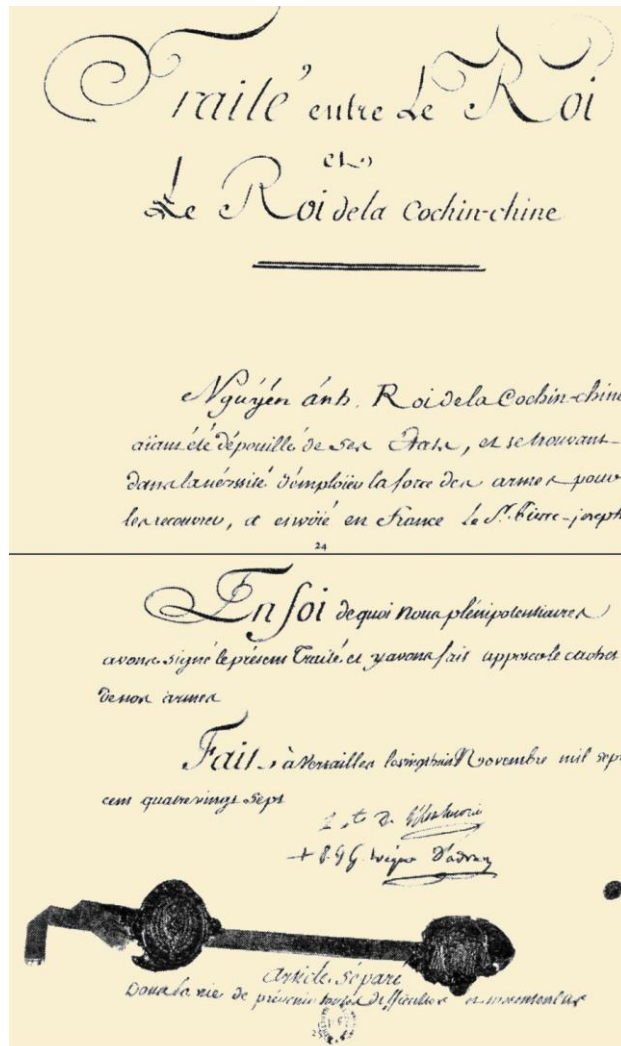 Traité entre Le Roi
et
Le Roi de la Cochin-chine
Nguyén ánh. Roi de la Cochin-chine
aïant été dépouillé de ses Etats, et se trouvant
dans la nécessité d'emploïer la force des armes pour
les recouvrer, a envoié en France le Sr. Pierre-joseph
24
En foi de quoi Nous plénipotentiaires
avons signé le présent Traité et y avons fait apposer le cachet
de nos armes
Fait à Versailles le vingt huit Novembre mil sept
cent quatre vingt sept
Le Cte De Montmorin
+ P. G G. évêque D'adran
Article séparé
Dans la vüe de prévenir toutes difficultés et mésentendus